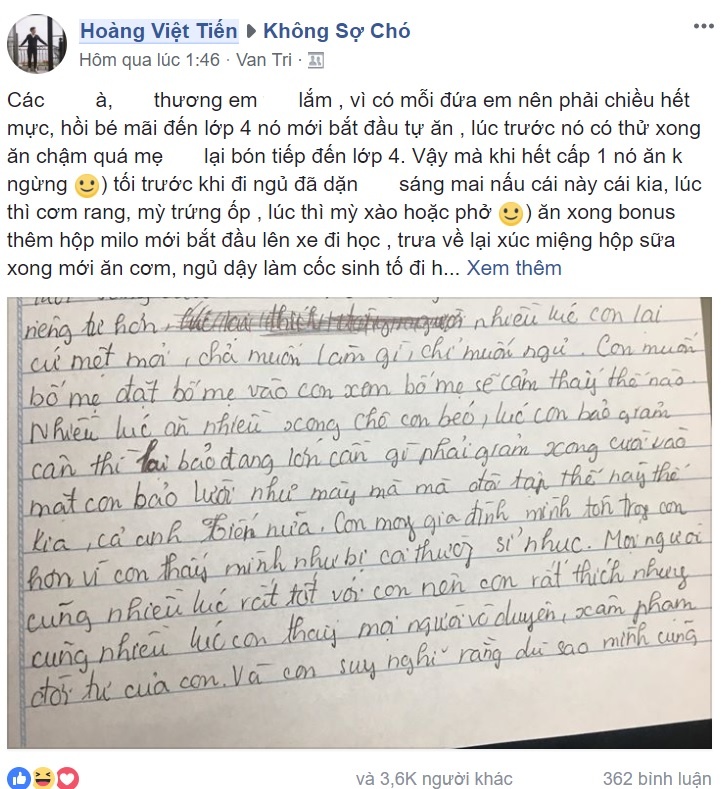 Hoàng Việt Tiến ▸ Không Sợ Chó
Hôm qua lúc 1:46 · Van Tri ·
Các à, thương em lắm , vì có mỗi đứa em nên phải chiều hết
mực, hồi bé mãi đến lớp 4 nó mới bắt đầu tự ăn , lúc trước nó có thử xong
ăn chậm quá mẹ lại bón tiếp đến lớp 4. Vậy mà khi hết cấp 1 nó ăn k
ngừng 🙂) tối trước khi đi ngủ đã dặn sáng mai nấu cái này cái kia, lúc
thì cơm rang, mỳ trứng ốp , lúc thì mỳ xào hoặc phở 🙂) ăn xong bonus
thêm hộp milo mới bắt đầu lên xe đi học , trưa về lại xúc miệng hộp sữa
xong mới ăn cơm, ngủ dậy làm cốc sinh tố đi h... Xem thêm
riêng tư hơn, nhiều lúc con lại
cứ mệt mỏi, chả muốn làm gì, chỉ muốn ngủ. Con muốn
bố mẹ đặt bố mẹ vào con xem bố mẹ sẽ cảm thấy thế nào.
Nhiều lúc ăn nhiều xong chê con béo, lúc con bảo giảm
cân thì lại bảo đang lớn cần gì phải giảm xong cười vào
mặt con bảo lười như mày mà mà đòi tập thế này thế
kia, cả anh Tiến nữa. Con mong gia đình mình tôn trọng con
hơn vì con thấy mình như bị cả thường sỉ nhục. Mọi người
cũng nhiều lúc rất tốt với con nên con rất thích nhưng
cũng nhiều lúc con thấy mọi người vô duyên, xâm phạm
đời tư của con. Và con suy nghĩ rằng dù sao mình cũng
và 3,6K người khác
362 bình luận